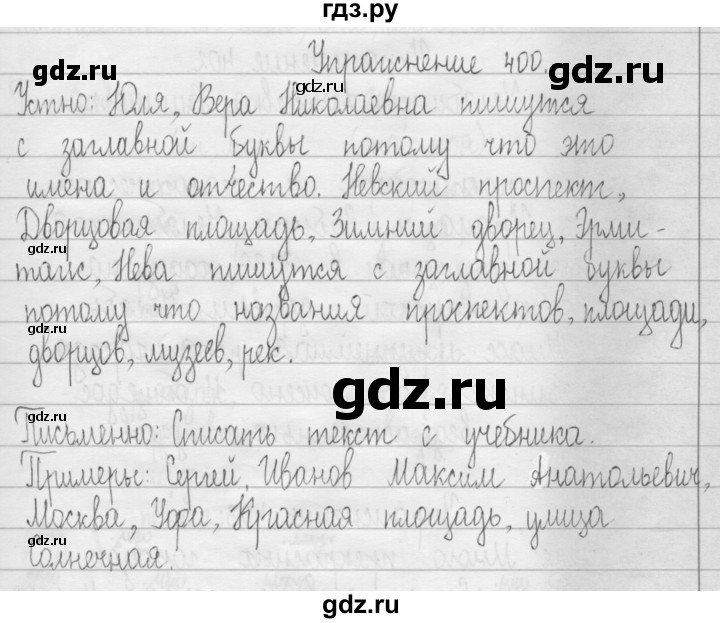 гдз.ру
Упражнение 400.
Устно: Юля, Вера Николаевна пишутся
с заглавной буквы потому что это
имена и отчество. Невский проспект,
Дворцовая площадь, Зимний дворец, Эрми-
таж, Нева пишутся с заглавной буквы
потому что названия проспектов, площади,
дворцов, музеев, рек.
gdz.ru
Письменно: Списать текст с учебника.
Примеры: Сергей, Иванов Максим Анатольевич,
Москва, Уфа, Красная площадь, улица
Солнечная.
gdz.ru